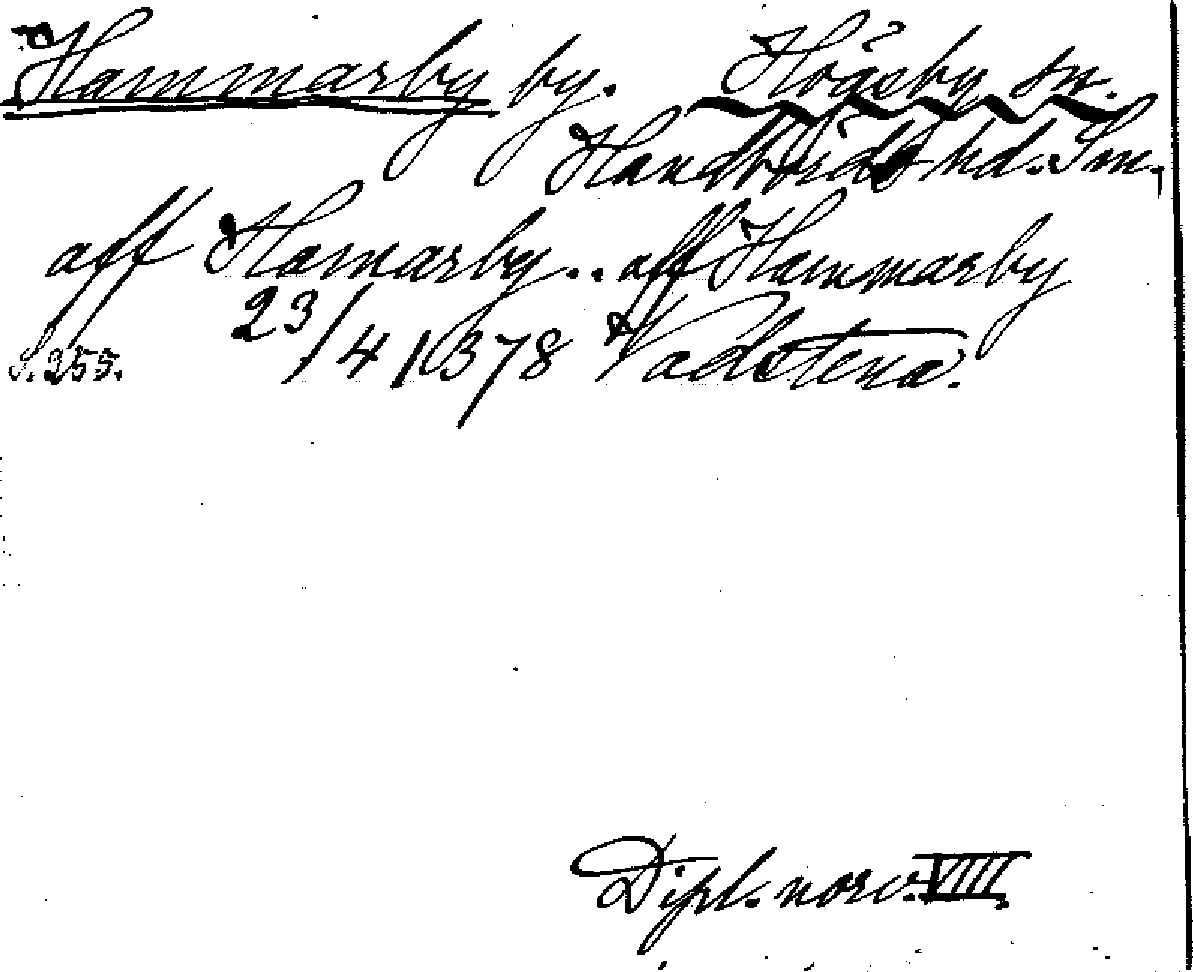 Hammarby by. Högsby sn.
Handbörds hd. Sm.
aff Hamarby .. aff Hammarby
S. 255. 23/4 1378 Vadstena.
Dipl. norv. VIII.